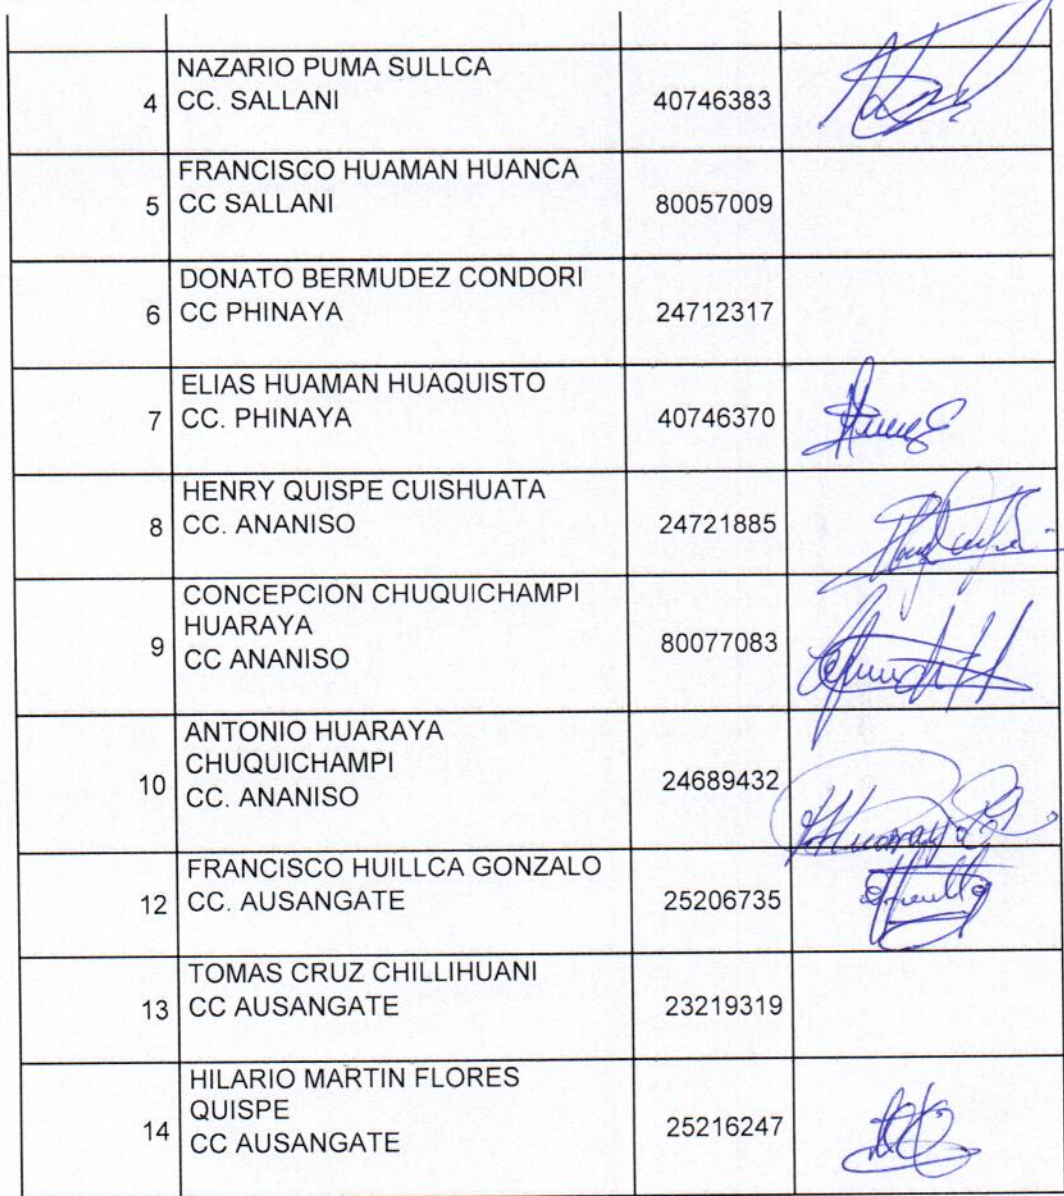 NAZARIO PUMA SULLCA
4 CC. SALLANI 40746383
FRANCISCO HUAMAN HUANCA
5 CC SALLANI 80057009
DONATO BERMUDEZ CONDORI
6 CC PHINAYA 24712317
ELIAS HUAMAN HUAQUISTO
7 CC. PHINAYA 40746370
HENRY QUISPE CUISHUATA
8 CC. ANANISO 24721885
CONCEPCION CHUQUICHAMPI
9 HUARAYA 80077083
CC ANANISO
ANTONIO HUARAYA
CHUQUICHAMPI
10 CC. ANANISO 24689432
FRANCISCO HUILLCA GONZALO
12 CC. AUSANGATE 25206735
TOMAS CRUZ CHILLIHUANI
13 CC AUSANGATE 23219319
HILARIO MARTIN FLORES
QUISPE
14 CC AUSANGATE 25216247